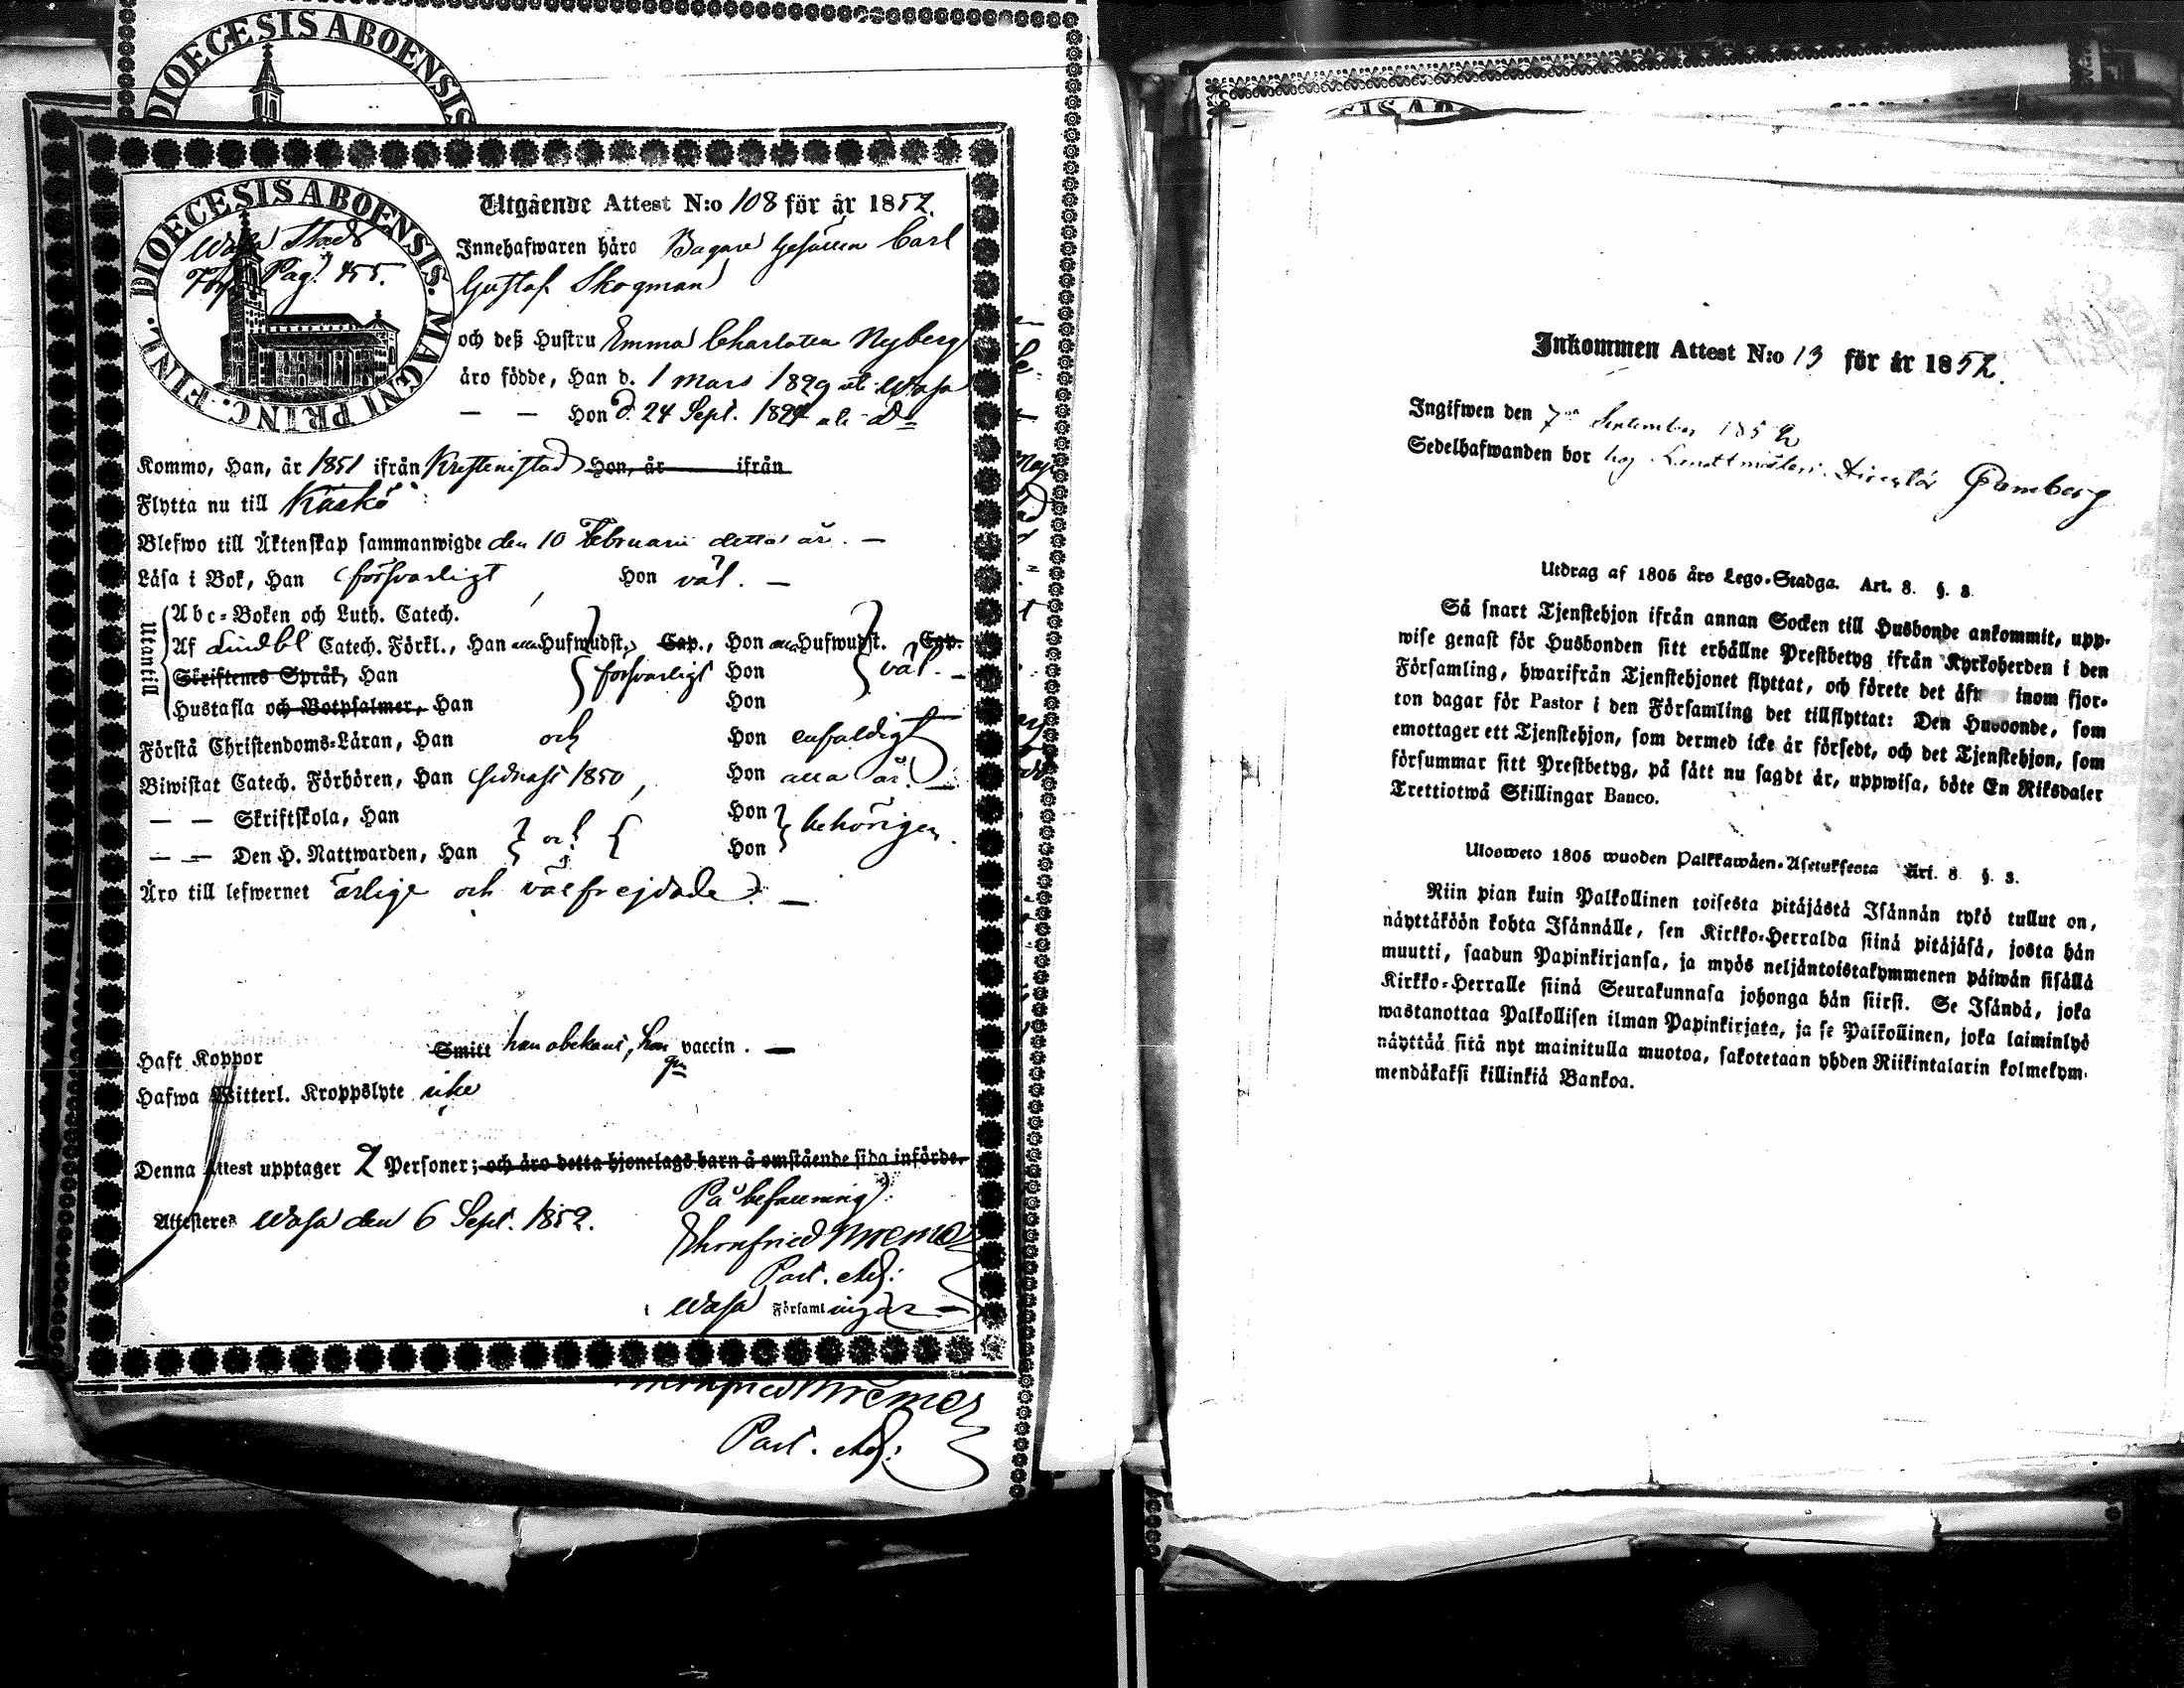 DIOECESIS ABOENSIS
DIOECESIS ABOENSIS. MAGNI PRINC. FINL.
Wasa Stads
Förs. Pag. 455.
Utgående Attest N:o 108 för år 1852.
Innehafwaren håra Bagare Gesällen Carl
Gustaf Skogman
och deß Hustru Emma Charlotta Nyberg
äro födde, Han d. 1 Mars 1829 uti Wasa
— — Hon d. 24 Sept. 1829 uti do
Kommo, Han, år 1851 ifrån Kristinestad Hon, år ifrån
Flytta nu till Kaskö
Blefwo till Äktenskap sammanwigde den 10 Februarii detta år. —
Läsa i Bok, Han försvarligt, Hon väl. —
Utantill
Abc-Boken och Luth. Catech.
Af Lindbl Catech. Förkl., Han Hufwudst., Cap., Hon Hufwudst. Cap.
Skriftenes Språk, Han försvarligt Hon väl. —
Hustafla och Botpsalmer, Han Hon
Förstå Christendoms-Läran, Han och Hon enfaldigt
Biwistat Catech. Förhören, Han sednast 1850, Hon alla år. —
— — Skriftskola, Han Hon
— — Den H. Nattwarden, Han och Hon behörigen.
Äro till lefwernet ärlige och välfrejdade. —
Haft Koppor Smitt han obekant, hon vaccin. —
Hafwa Witterl. Kroppslyte icke
Denna Attest upptager 2 Personer; och äro detta hjonelags barn å omstående sida införde.
Attesteres Wasa den 6 Sept. 1852.
På befallning:
Past. Adj:
i Wasa Församlingar —
Past. Adj:
Inkommen Attest N:o 13 för år 1852.
Ingifwen den 7de September 1852
Sedelhafwanden bor hos Landtmäteri Direktör
Utdrag af 1805 års Lego-Stadga. Art. 8. §. 3.
Så snart Tjenstehjon ifrån annan Socken till Husbonde ankommit, upp-
wise genast för Husbonden sitt erhållne Prestbetyg ifrån Kyrkoherden i den
Församling, hwarifrån Tjenstehjonet flyttat, och förete det äfw inom fjor-
ton dagar för Pastor i den Församling det tillflyttat: Den Husbonde, som
emottager ett Tjenstehjon, som dermed icke är försedt, och det Tjenstehjon, som
försummar sitt Prestbetyg, på sätt nu sagdt är, uppwisa, böte En Riksdaler
Trettiotwå Skillingar Banco.
Ulosweto 1805 wuoden Palkkawäen-Asetuksesta Art. 8 §. 3.
Niin pian kuin Palkollinen toisesta pitäjästä Isännän tykö tullut on,
näyttäköön kohta Isännälle, sen Kirkko-Herralda siinä pitäjäsä, josta hän
muutti, saadun Papinkirjansa, ja myös neljäntoistakymmenen päiwän sisällä
Kirkko-Herralle siinä Seurakunnasa johonga hän siirsi. Se Isändä, joka
wastanottaa Palkollisen ilman Papinkirjata, ja se Palkollinen, joka laiminlyö
näyttää sitä nyt mainitulla muotoa, sakotetaan yhden Riikintalarin kolmekym-
mendäkaksi killinkiä Bankoa.